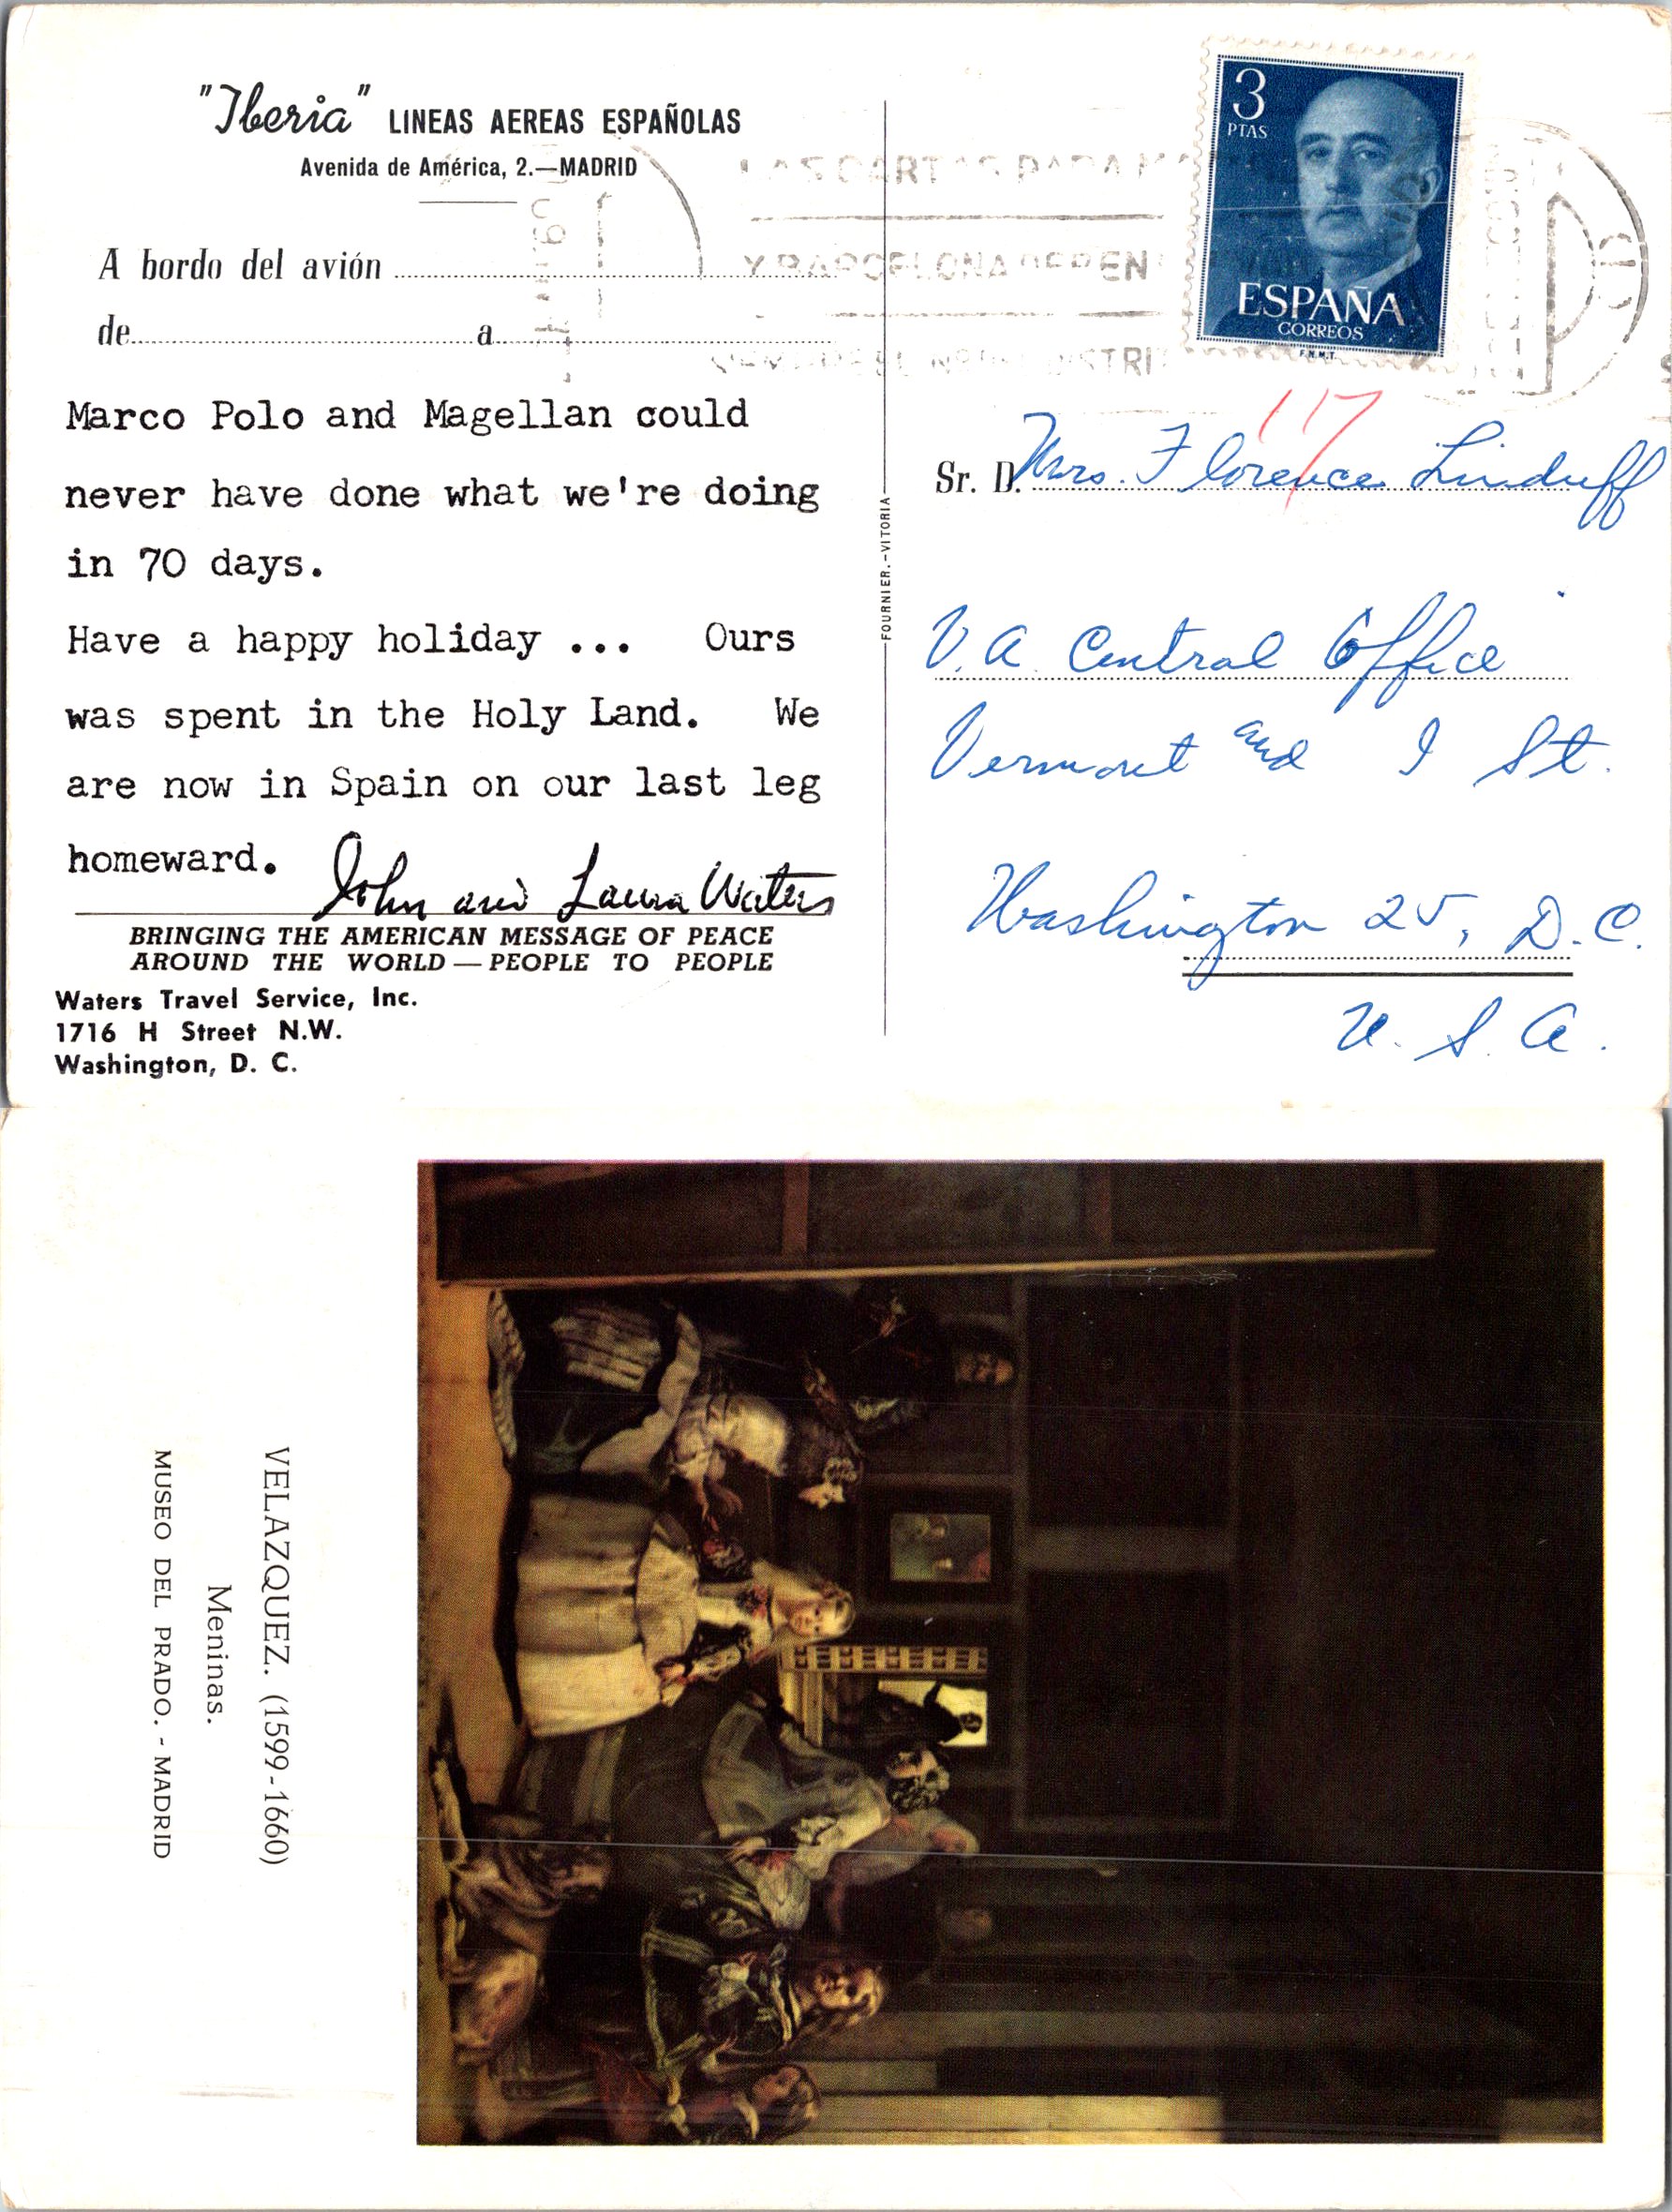 "Iberia" LINEAS AEREAS ESPAÑOLAS
Avenida de América, 2.—MADRID
A bordo del avión
de a
Marco Polo and Magellan could
never have done what we're doing
in 70 days.
Have a happy holiday ... Ours
was spent in the Holy Land. We
are now in Spain on our last leg
homeward.
John and Laura Waters
BRINGING THE AMERICAN MESSAGE OF PEACE
AROUND THE WORLD — PEOPLE TO PEOPLE
Waters Travel Service, Inc.
1716 H Street N.W.
Washington, D. C.
FOURNIER.-VITORIA
3
PTAS
ESPAÑA
CORREOS
F.N.M.T.
CARTAS PARA
Y BARCELONA
117
Sr. D. Mrs. Florence Linduff
V.A. Central Office
Vermont and I St.
Washington 25, D.C.
U.S.A.
VELAZQUEZ. (1599-1660)
Meninas.
MUSEO DEL PRADO. - MADRID